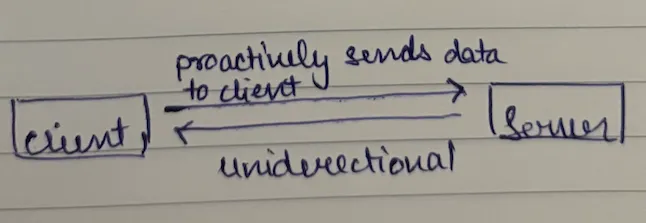 proactively sends data
to client
client
server
unidirectional